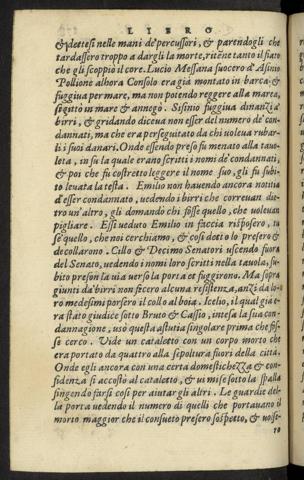 LIBRO
& dettesi nelle mani de'percussori, & parendogli che
tardassero troppo a dargli la morte, ritẽne tanto il fiato
che gli scoppiò il core. Lucio Messana suocero d'Asinio
Pollione alhora Consolo era già montato in barca, &
fuggiua per mare, ma non potendo reggere alla marea,
si gittò in mare & annegò. Sisinio fuggiua dinanzi a'
birri, & gridando diceua non esser del numero de' con-
dannati, ma che era perseguitato da chi uoleua rubar-
li i suoi danari. Onde essendo preso fu menato alla tauo-
lota, in su la quale erano scritti i nomi de' condannati,
& poi che fu costretto leggere il nome suo, gli fu subi-
to leuata la testa. Emilio non hauendo ancora notitia
d'esser condannato, uedendo i birri che correuan die-
tro un'altro, gli domandò chi fosse quello, che uoleuan
pigliare. Essi ueduto Emilio in faccia risposero, tu
se quello, che noi cerchiamo, & cosi detto lo presero &
decollarono. Cillo & Decimo Senatori uscendo fuora
del Senato, uedendo i nomi loro scritti nella tauola, su-
bito preson la uia uerso la porta et fuggirono. Ma sopra
giunti da'birri non fecero alcuna resistenza, anzi da lo-
ro medesimi porsero il collo al boia. Icelio, il qual gia e-
ra stato giudice sotto Bruto & Cassio, intesa la sua con-
dannagione, usò questa astutia singolare prima che fos-
se cerco. Vide un cataletto con un corpo morto che
era portato da quattro alla sepoltura fuori della città.
Onde egli ancora con una certa domestichezza & con-
fidenza si accostò al cataletto, & ui mise sotto la spalla
fingendo farsi cosi per aiutar gli altri. Le guardie del-
la porta uedendo il numero di quelli che portauano il
morto maggior che il consueto presero sospetto, & uolse-
ro